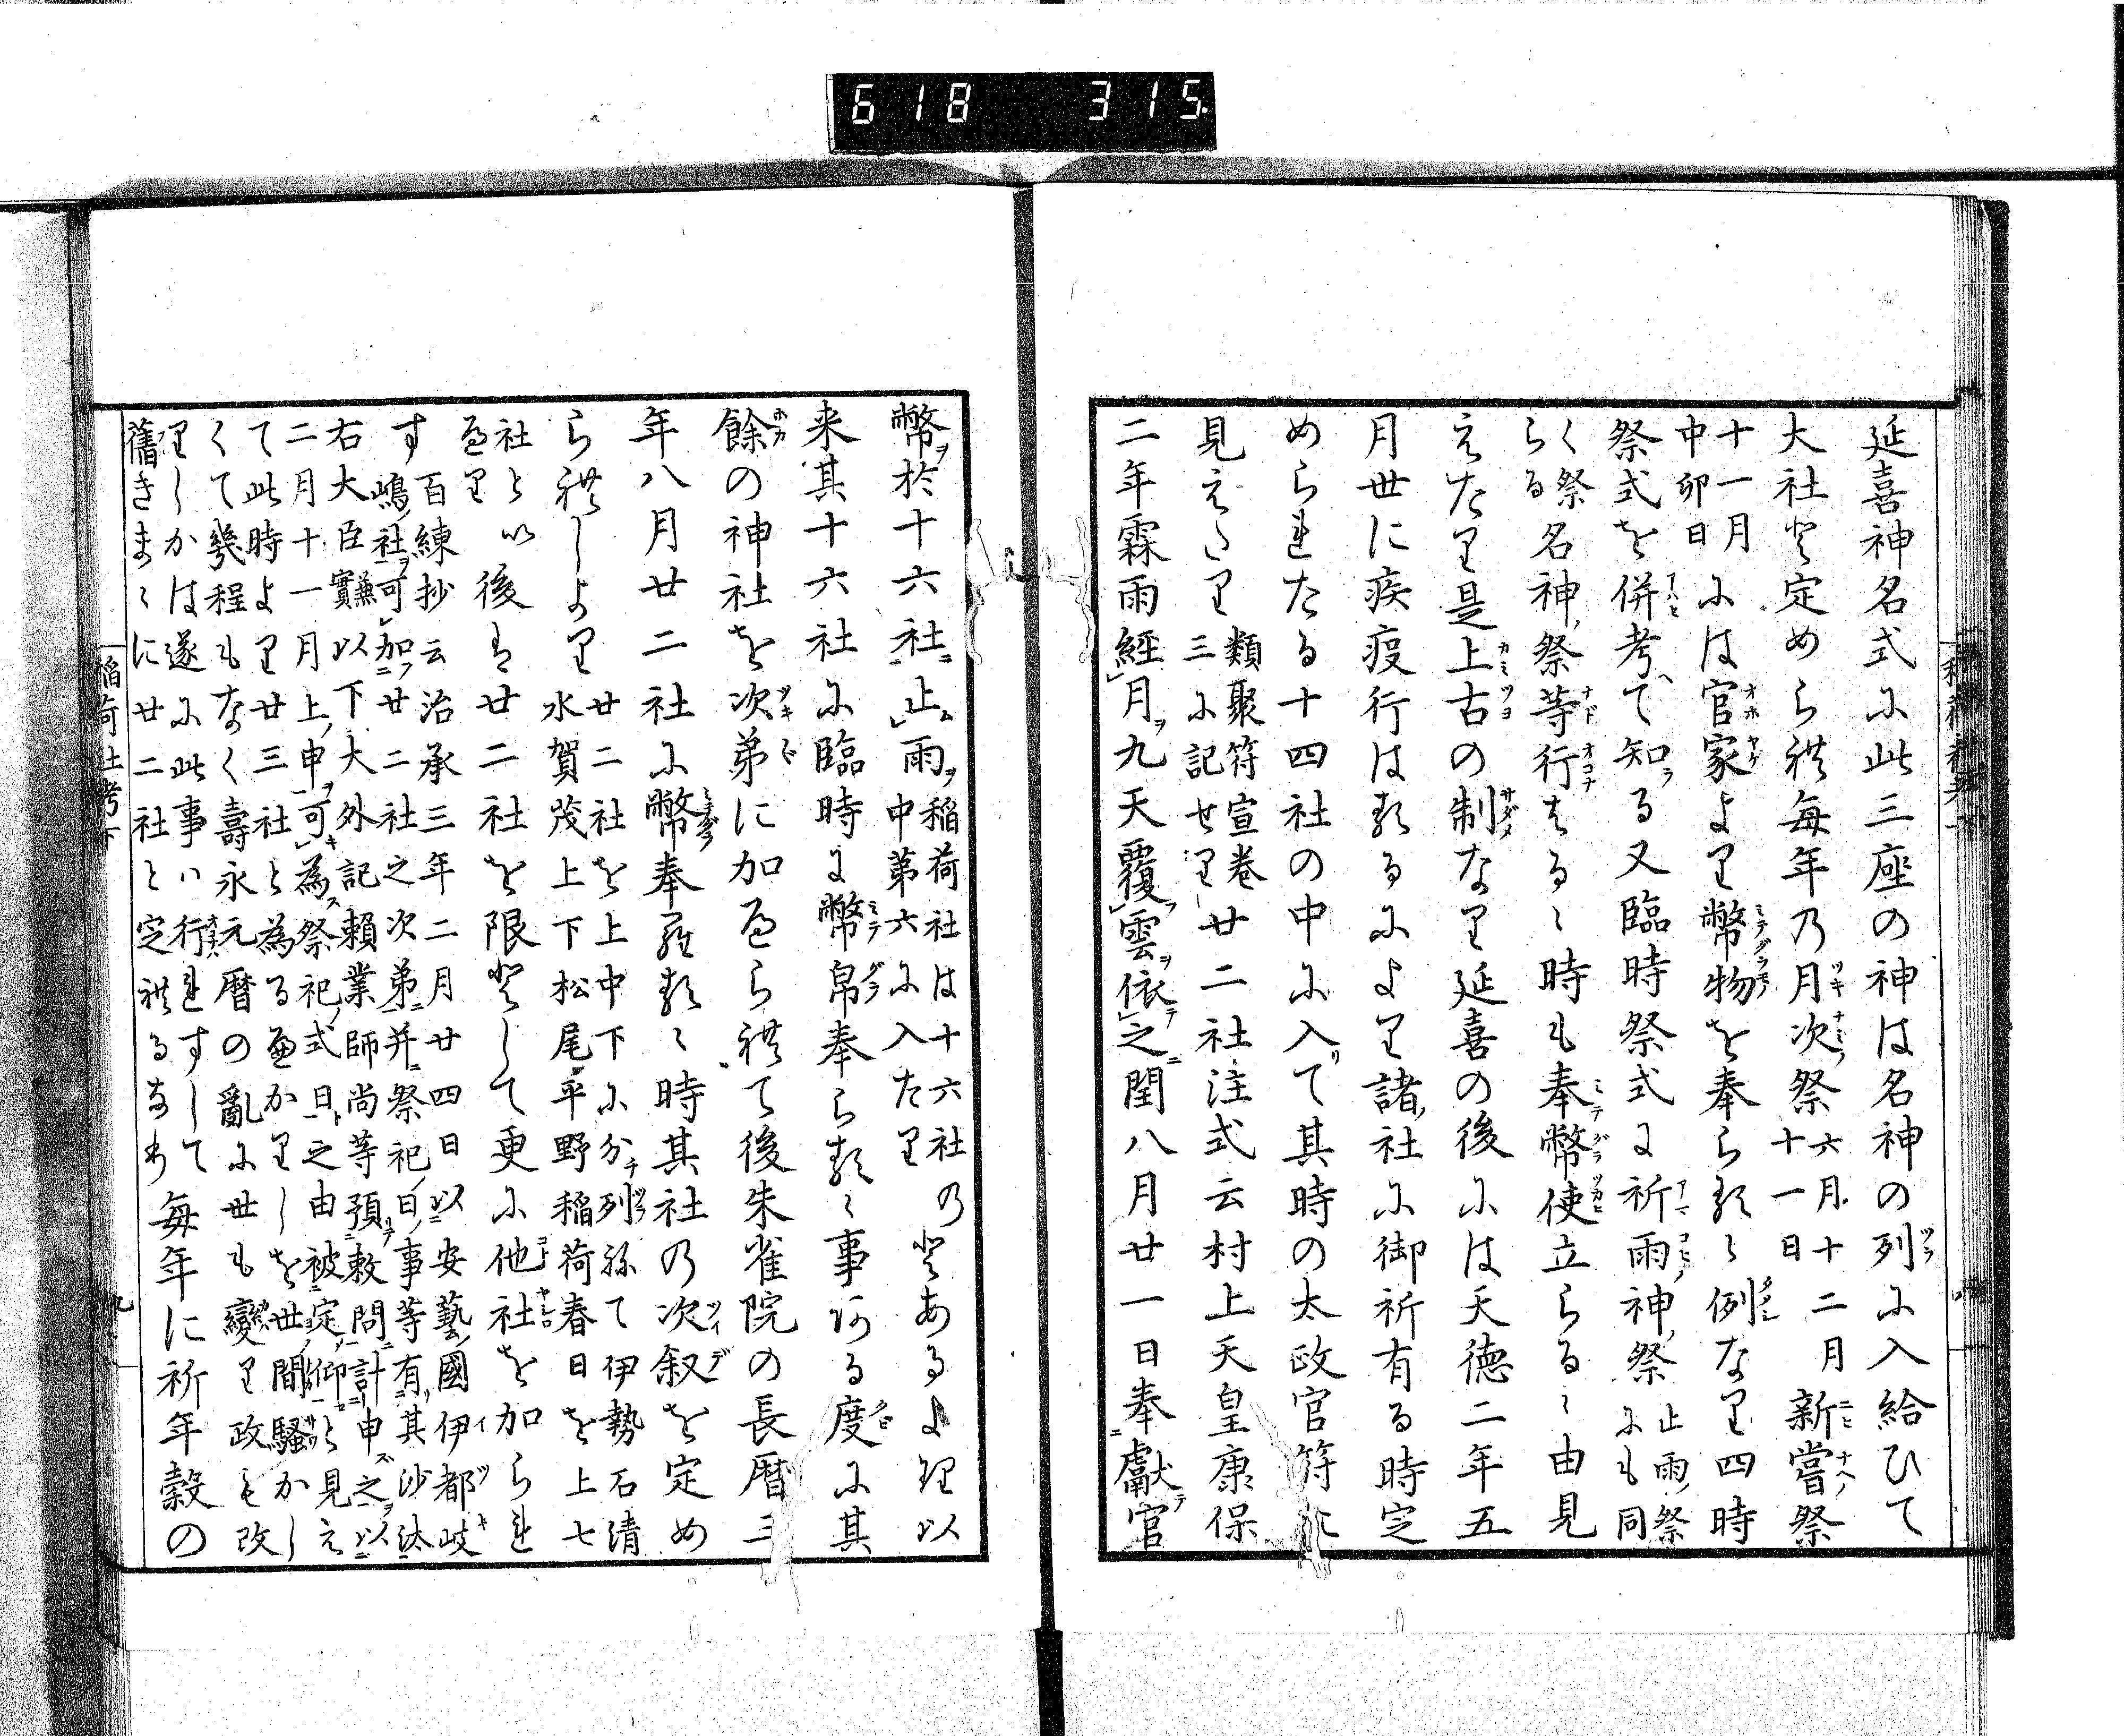 618 315
延喜神名式に此三座の神は名神の列に入給ひて
大社と定められ毎年の月次祭六月十二月十一日新嘗祭
十一月中卯日には官家より幣物を奉らるゝ例なり四時
祭式を併考て知る又臨時祭式に祈雨神祭止雨祭にも同
く祭らる名神祭等行はるゝ時も奉幣使立らるゝ由見
えたり是上古の制なり延喜の後には天徳二年五
月世に疾疫行はるるによりて諸社に御祈有る時定
められたる十四社の中に入て其時の太政官符に
見えたり類聚符宣巻三に記せり廿二社注式云村上天皇康保
二年霖雨經月九天覆雲依之閏八月廿一日奉獻官
幣於十六社止雨稲荷社は十六社の中第六に入たりとあるより以
来其十六社に臨時に幣帛奉らるゝ事ある度に其
餘の神社を次第に加へられて後朱雀院の長暦三
年八月廿二社に幣奉らるゝ時其社の次叙を定め
られしより廿二社を上中下に分列ねて伊勢石清水賀茂上下松尾平野稲荷春日を上七
社と以後は廿二社を限として更に他社を加られ
す百練抄云治承三年二月廿四日以安藝國伊都岐嶋社可加廿二社之次第并祭祀日事等有其沙汰
右大臣兼實以下大外記頼業師尚等預敕問計申之以
二月十一月上申可為祭祀式日之由被定仰と見え
て此時より廿三社と為るへかりしを世間騒かし
くて幾程もなく壽永元暦の亂に世も變り政も改
りしかは遂に此事ハ行れすして
舊きまゝに廿二社と定れるなり毎年に祈年穀の
稲荷社考下
九